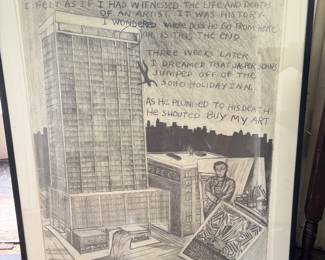 I FELT AS IF I HAD WITNESSED THE LIFE AND DEATH
OF AN ARTIST. IT WAS HISTORY.
I WONDERED WHERE DOES HE GO FROM HERE
OR IS THIS THE END
THREE WEEKS LATER
I DREAMED THAT JASPER JOHNS
JUMPED OFF OF THE
SOHO HOLIDAY INN.
AS HE PLUNGED TO HIS DEATH
HE SHOUTED BUY MY ART